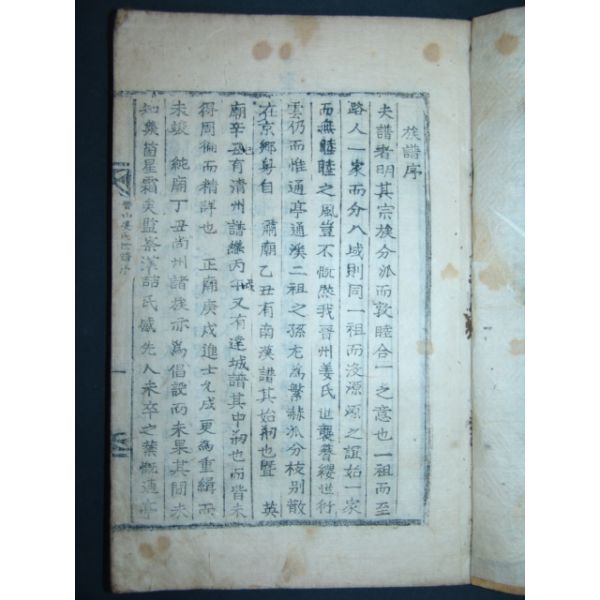 族譜序
夫譜者明其宗族分派而敦睦合一之意也一祖而至
路人一家而分八域則同一祖而没源頭之誼始一家
而無睦睦之風豈不慨然我晉州姜氏世襲簪纓世衍
雲仍而惟通亭通溪二祖之孫尤爲繁赫派分枝別散
在京鄕粤自 肅廟乙丑有南漢譜其始刱也曁 英
廟辛丑有淸州譜繼丙子又有達城譜其中刱也而皆未
得周徧而精詳也 正廟庚戌進士允成更爲重緝而
未竣 純廟丁丑尙州諸族亦爲倡設而未果其間未
知幾箇星霜矣監察漢喆氏感先人未卒之業慨通亭
晉山姜氏世譜序
一